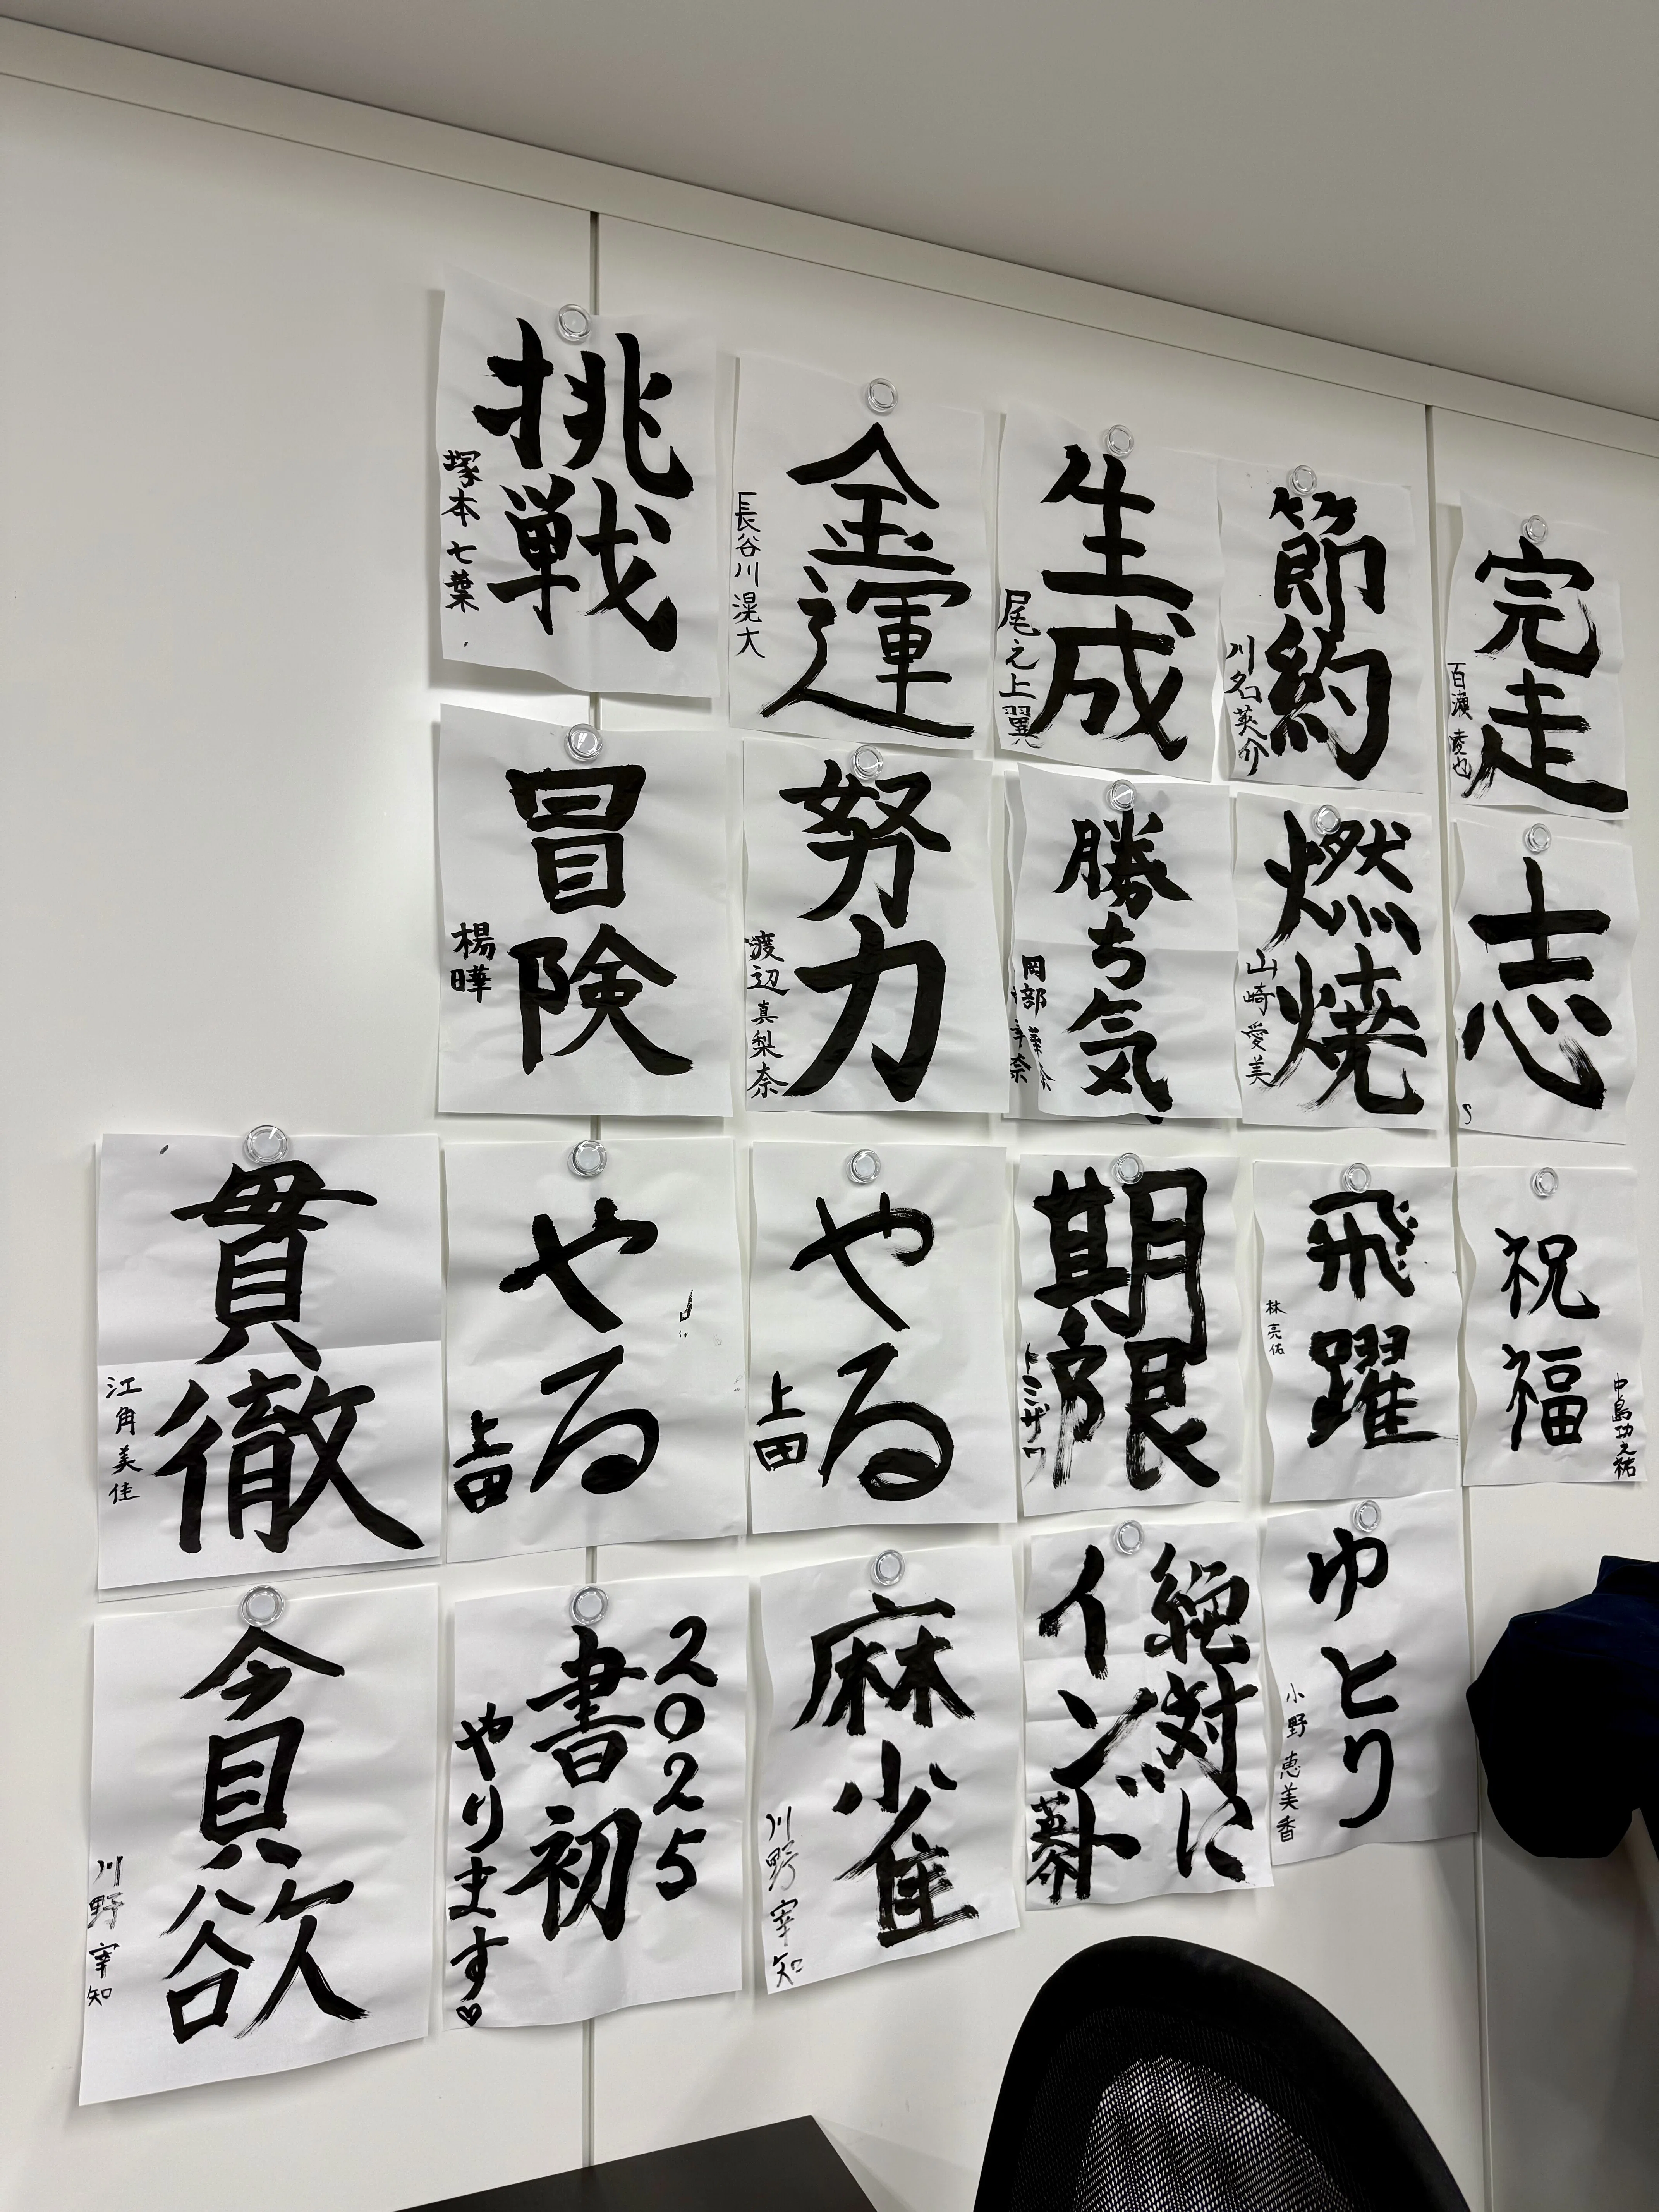 挑戦
塚本 七葉
金運
長谷川 滉大
生成
尾之上 翼
節約
川名 英介
完走
百瀬 凌也
冒険
楊曄
努力
渡辺 真梨奈
勝ち気
岡部
燃焼
山崎 愛美
志
貫徹
江角美佳
やる
上田
やる
上田
期限
トミザワ
飛躍
林 亮佑
祝福
中島功之祐
貪欲
川野 宰知
2025
書初
やります♡
麻雀
川野 宰知
絶対に
インド
ゆとり
小野 恵美香